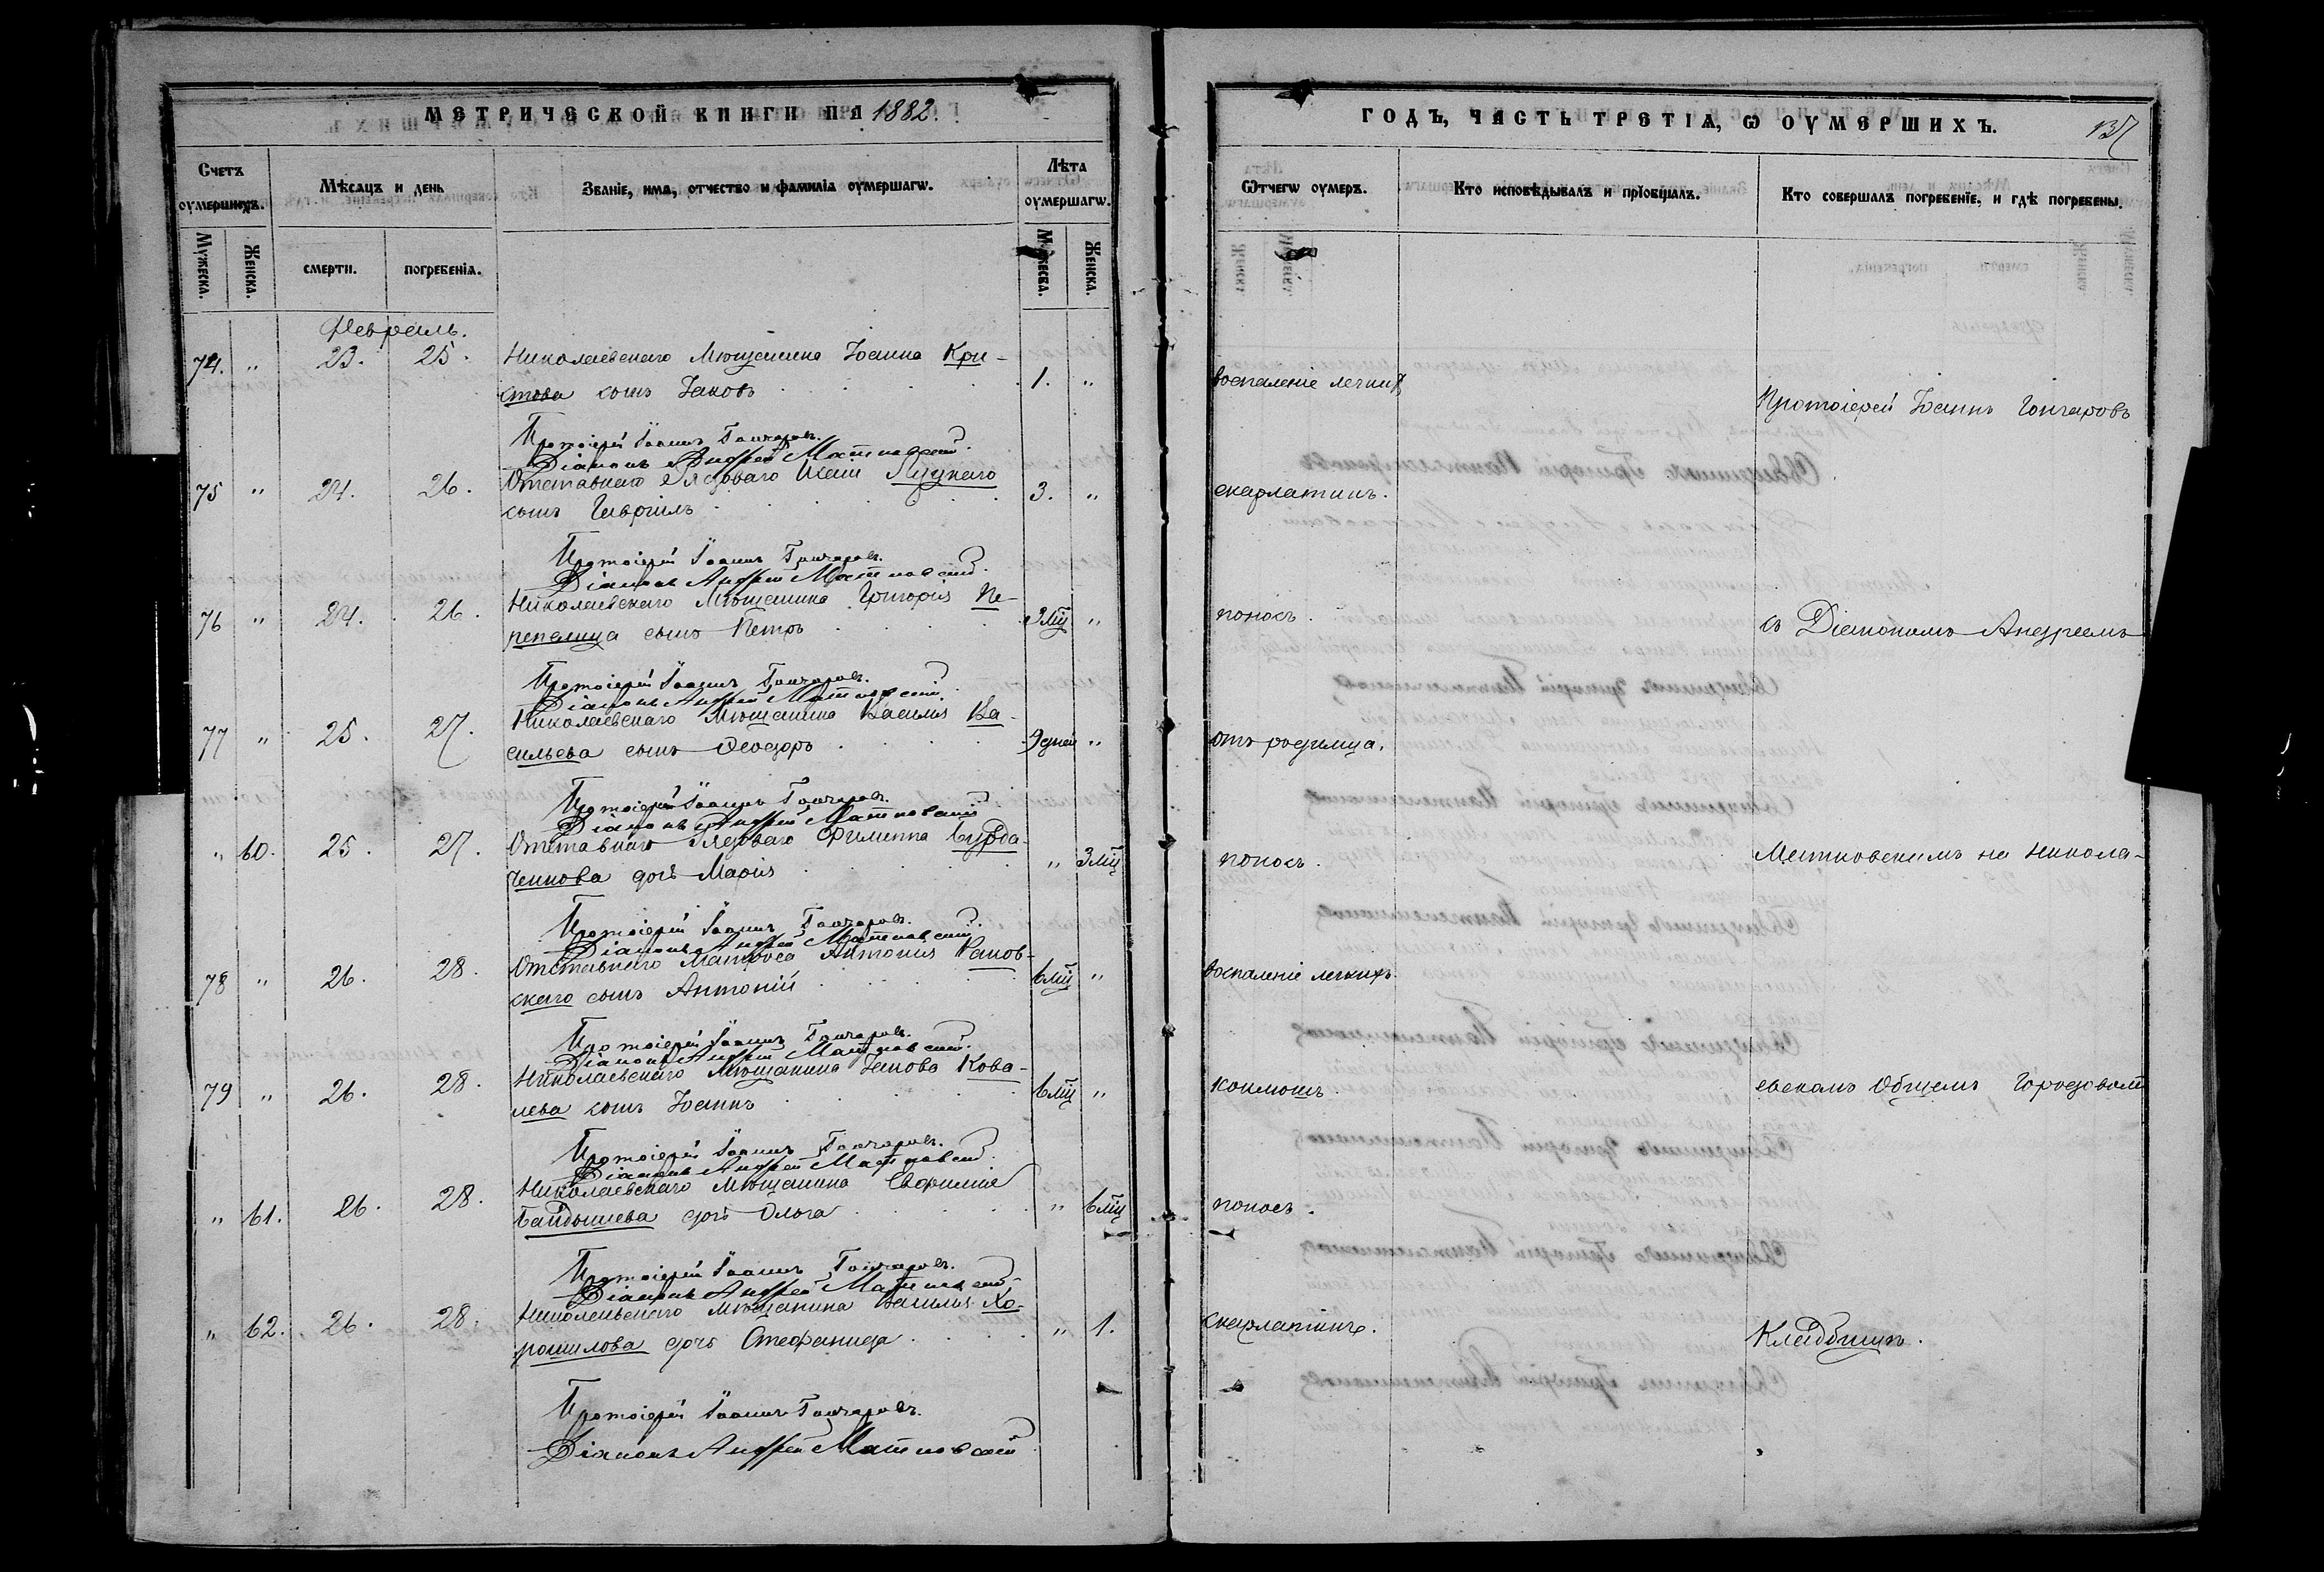 МЕТРИЧЕСКОЙ КНИГИ НА 1882.
Счетъ оумершихъ.
Мѣсяцъ и день
Званіе, имя, отчество и фамилія оумершагѡ.
Лѣта оумершагѡ.
Мужеска.
Женска.
смерти.
погребенія.
Мужеска.
Женска.
Февраль.
74. " 23. 25. Николаевскаго Мѣщанина Іоанна Кри-
стова сынъ Іаковъ 1. "
Протоіерей Іоаннъ Гончаровъ.
Діаконъ Андрей Матковскій
75 " 24. 26. Отставнаго Рядоваго Луцкаго
сынъ Гавріилъ 3. "
Протоіерей Іоаннъ Гончаровъ.
Діаконъ Андрей Матковскій
76 " 24. 26. Николаевскаго Мѣщанина Григорія Пе-
репелица сынъ Петръ 3 мц "
Протоіерей Іоаннъ Гончаровъ.
Діаконъ Андрей Матковскій
77 " 25. 27. Николаевскаго Мѣщанина Василія Ва-
сильева сынъ Ѳеодоръ 9 дней "
Протоіерей Іоаннъ Гончаровъ.
Діаконъ Андрей Матковскій
" 60. 25. 27. Отставнаго Рядоваго Филиппа Бурда-
ченкова дочь Марія " 3 мц
Протоіерей Іоаннъ Гончаровъ.
Діаконъ Андрей Матковскій
78 " 26. 28. Отставнаго Матроса Антонія
скаго сынъ Антоній 6 мц "
Протоіерей Іоаннъ Гончаровъ.
Діаконъ Андрей Матковскій
79 " 26. 28. Николаевскаго Мѣщанина Іакова Кова-
лева сынъ Іоаннъ 6 мц "
Протоіерей Іоаннъ Гончаровъ.
Діаконъ Андрей Матковскій
" 61. 26. 28. Николаевскаго Мѣщанина
дочь Ольга " 6 мц
Протоіерей Іоаннъ Гончаровъ.
Діаконъ Андрей Матковскій
" 62. 26. 28. Николаевскаго Мѣщанина Василія Хо-
рошилова дочь Стефанида " 1.
Протоіерей Іоаннъ Гончаровъ.
Діаконъ Андрей Матковскій
ГОДЪ, ЧАСТЬ ТРЕТІЯ, Ѡ ОУМЕРШИХЪ.
137
Ѿчегѡ оумеръ.
Кто исповѣдывалъ и пріобщалъ.
Кто совершалъ погребеніе, и гдѣ погребены.
воспаленіе легкихъ
Протоіерей Іоаннъ Гончаровъ
скарлатинъ.
поносъ.
съ Діакономъ Андреемъ
отъ родимца.
поносъ.
Матковскимъ на Никола-
воспаленіе легкихъ.
коклюшъ.
евскомъ Общемъ Городовомъ
поносъ.
скарлатинъ.
Кладбищѣ.